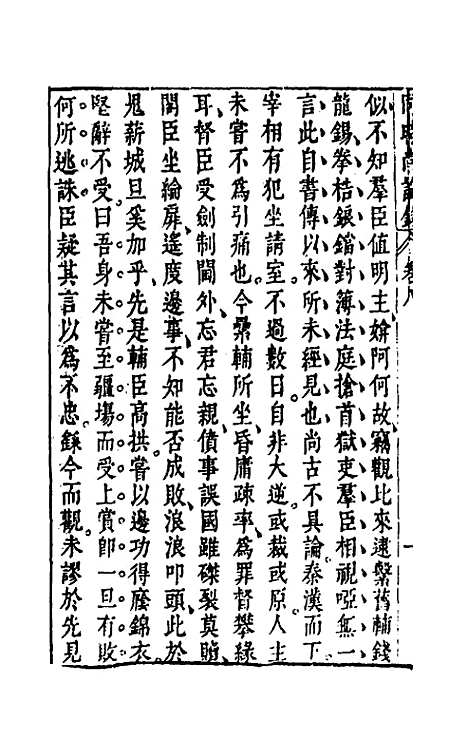 似不知羣臣值明主媕阿何故竊觀比來逮繫舊輔錢
龍錫拳梏鋃鐺對簿法庭搶首獄吏羣臣相視啞無一
言此自書傳以來所未經見也尚古不具論秦漢而下
宰相有犯坐請室不過數日自非大逆或裁或原人主
未嘗不爲引痛也今纍輔所坐昏庸疎率爲罪督攀緣
耳督臣受劍制閫外忘君忘親僨事誤國雖磔裂莫贖
閣臣坐綸扉遙度邊事不知能否成敗浪浪叩頭此於
鬼薪城旦奚加乎先是輔臣高拱嘗以邊功得廕錦衣
堅辭不受曰吾身未嘗至疆場而受上賞卽一旦有敗
何所逃誅臣疑其言以爲不忠繇今而觀未謬於先見